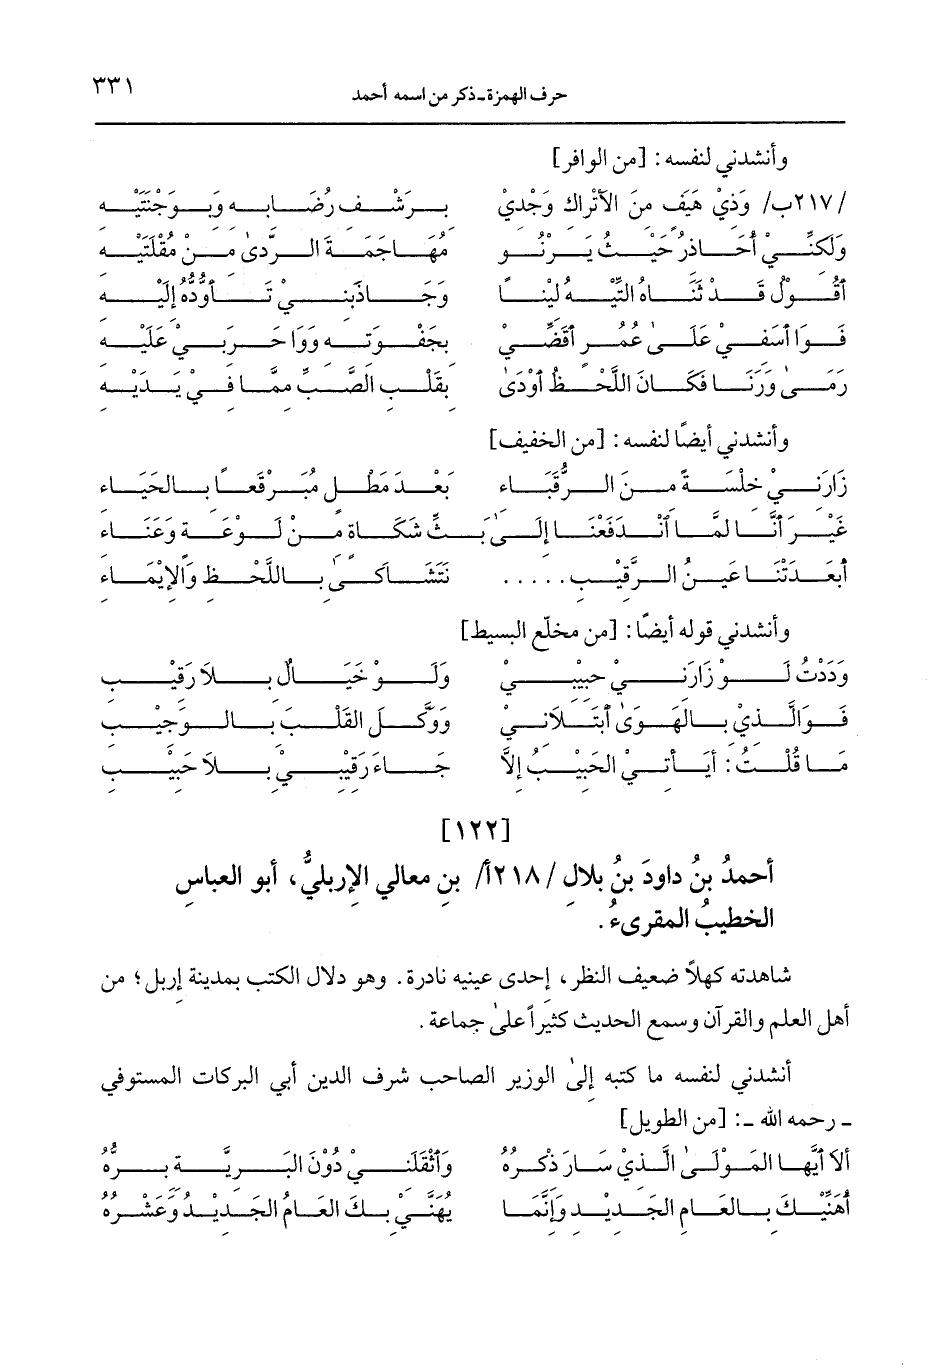 حرف الهمزة-ذكر من اسمه أحمد ٣٣١
وأنشدني لنفسه: [من الوافر]
/٢١٧ب/ وَذِيْ هَيَفٍ مِنَ الأَتْرَاكِ وَجْدِيْ بِرَشْفِ رُضَابِهِ وَبِوَجْنَتَيْهِ
وَلَكِنِّيْ أُحَاذِرُ حَيْثُ يَرْنُو مُهَاجَمَةَ الرَّدىٰ مِنْ مُقْلَتَيْهِ
أَقُوْلُ قَدْ ثَنَاهُ التِّيْهُ لِيْنًا وَجَاذَبَنِيْ تَأَوُّدُهُ إِلَيْهِ
فَوَا أَسَفِيْ عَلَىٰ عُمُرٍ أُقَضِّيْ بِجَفْوَتِهِ وَوَا حَرَبِيْ عَلَيْهِ
رَمَىٰ وَرَنَا فَكَانَ اللَّحْظُ أَوْدَىٰ بِقَلْبِ الصَّبِّ مِمَّا فِيْ يَدَيْهِ
وأنشدني أيضًا لنفسه: [من الخفيف]
زَارَنِيْ خِلْسَةً مِنَ الرُّقَبَاءِ بَعْدَ مَطْلٍ مُبَرْقَعًا بِالحَيَاءِ
غَيْرَ أَنَّا لَمَّا أنْدَفَعْنَا إِلَىٰ بَثِّ شَكَاةٍ مِنْ لَوْعَةٍ وَعَنَاءِ
أَبْعَدَتْنَا عَيْنُ الرَّقِيْبِ..... نَتَشَاكَىٰ بِاللَّحْظِ وَالإِيْمَاءِ
وأنشدني قوله أيضًا: [من مخلّع البسيط]
وَدَدْتُ لَوْ زَارَنِيْ حَبِيْبِيْ وَلَوْ خَيَالٌ بِلاَ رَقِيْبِ
فَوَالَّذِيْ بِالهَوَىٰ أبْتَلاَنِيْ وَوَكَّلَ القَلْبَ بِالوَجِيْبِ
مَا قُلْتُ: أَيَأتِيْ الحَبِيْبُ إِلاَّ جَاءَ رَقِيْبِيْ بِلاَ حَبِيْبِ
[١٢٢]
أحمدُ بنُ داودَ بنُ بلالِ /٢١٨أ/ بنِ معالي الإربليُّ، أبو العباسِ
الخطيبُ المقرىءُ.
شاهدته كهلاً ضعيف النظر، إحدى عينيه نادرة. وهو دلال الكتب بمدينة إربل؛ من
أهل العلم والقرآن وسمع الحديث كثيراً علىٰ جماعة.
أنشدني لنفسه ما كتبه إلىٰ الوزير الصاحب شرف الدين أبي البركات المستوفي
ـ رحمه الله ـ: [من الطويل]
أَلاَ أَيُّهَا المَوْلَىٰ الَّذِيْ سَارَ ذِكْرُهُ وَأَثْقَلَنِيْ دُوْنَ البَرِيَّةِ بِرُّهُ
أُهَنِّيْكَ بِالعَامِ الجَدِيْدِ وَإِنَّمَا يُهَنَّىْ بِكَ العَامُ الجَدِيْدُ وَعَشْرُهُ